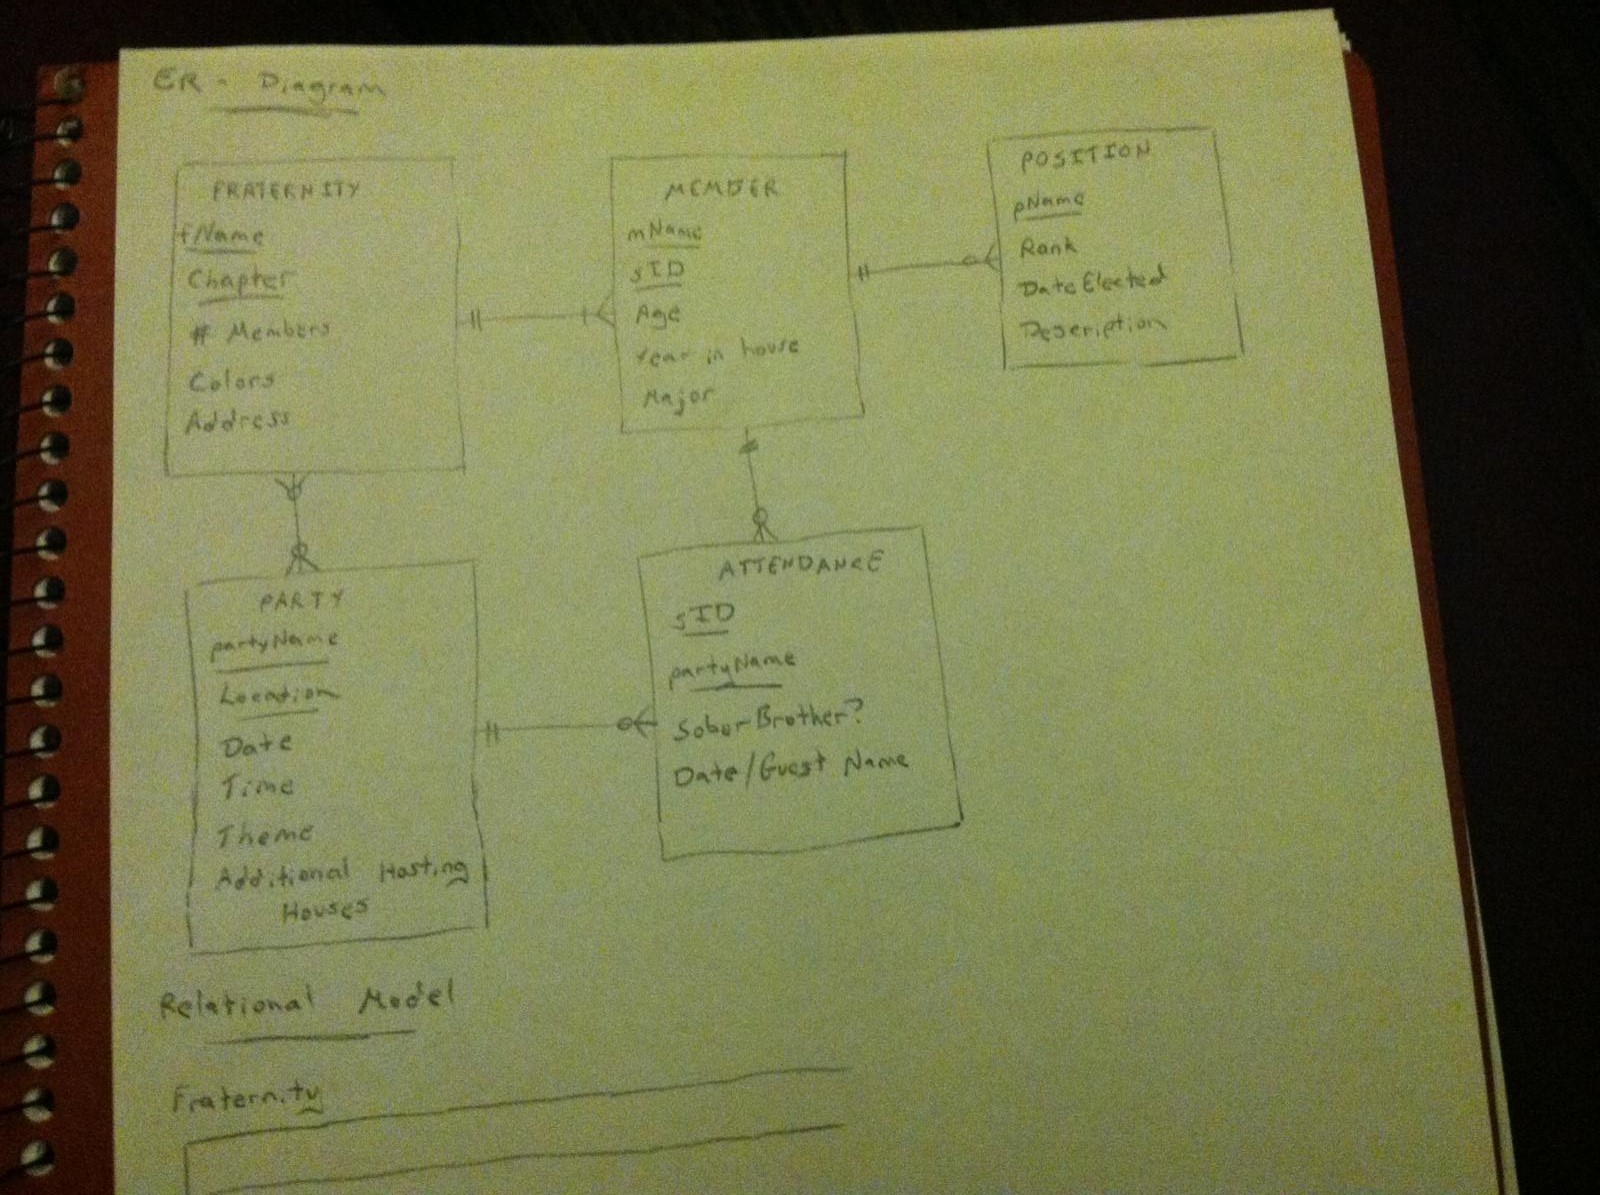 ER - Diagram
FRATERNITY
fName
Chapter
# Members
Colors
Address
MEMBER
mName
sID
Age
Year in house
Major
POSITION
pName
Rank
DateElected
Description
PARTY
partyName
Location
Date
Time
Theme
Additional Hosting
Houses
ATTENDANCE
sID
partyName
SoborBrother?
Date/Guest Name
Relational Model
Fraternity